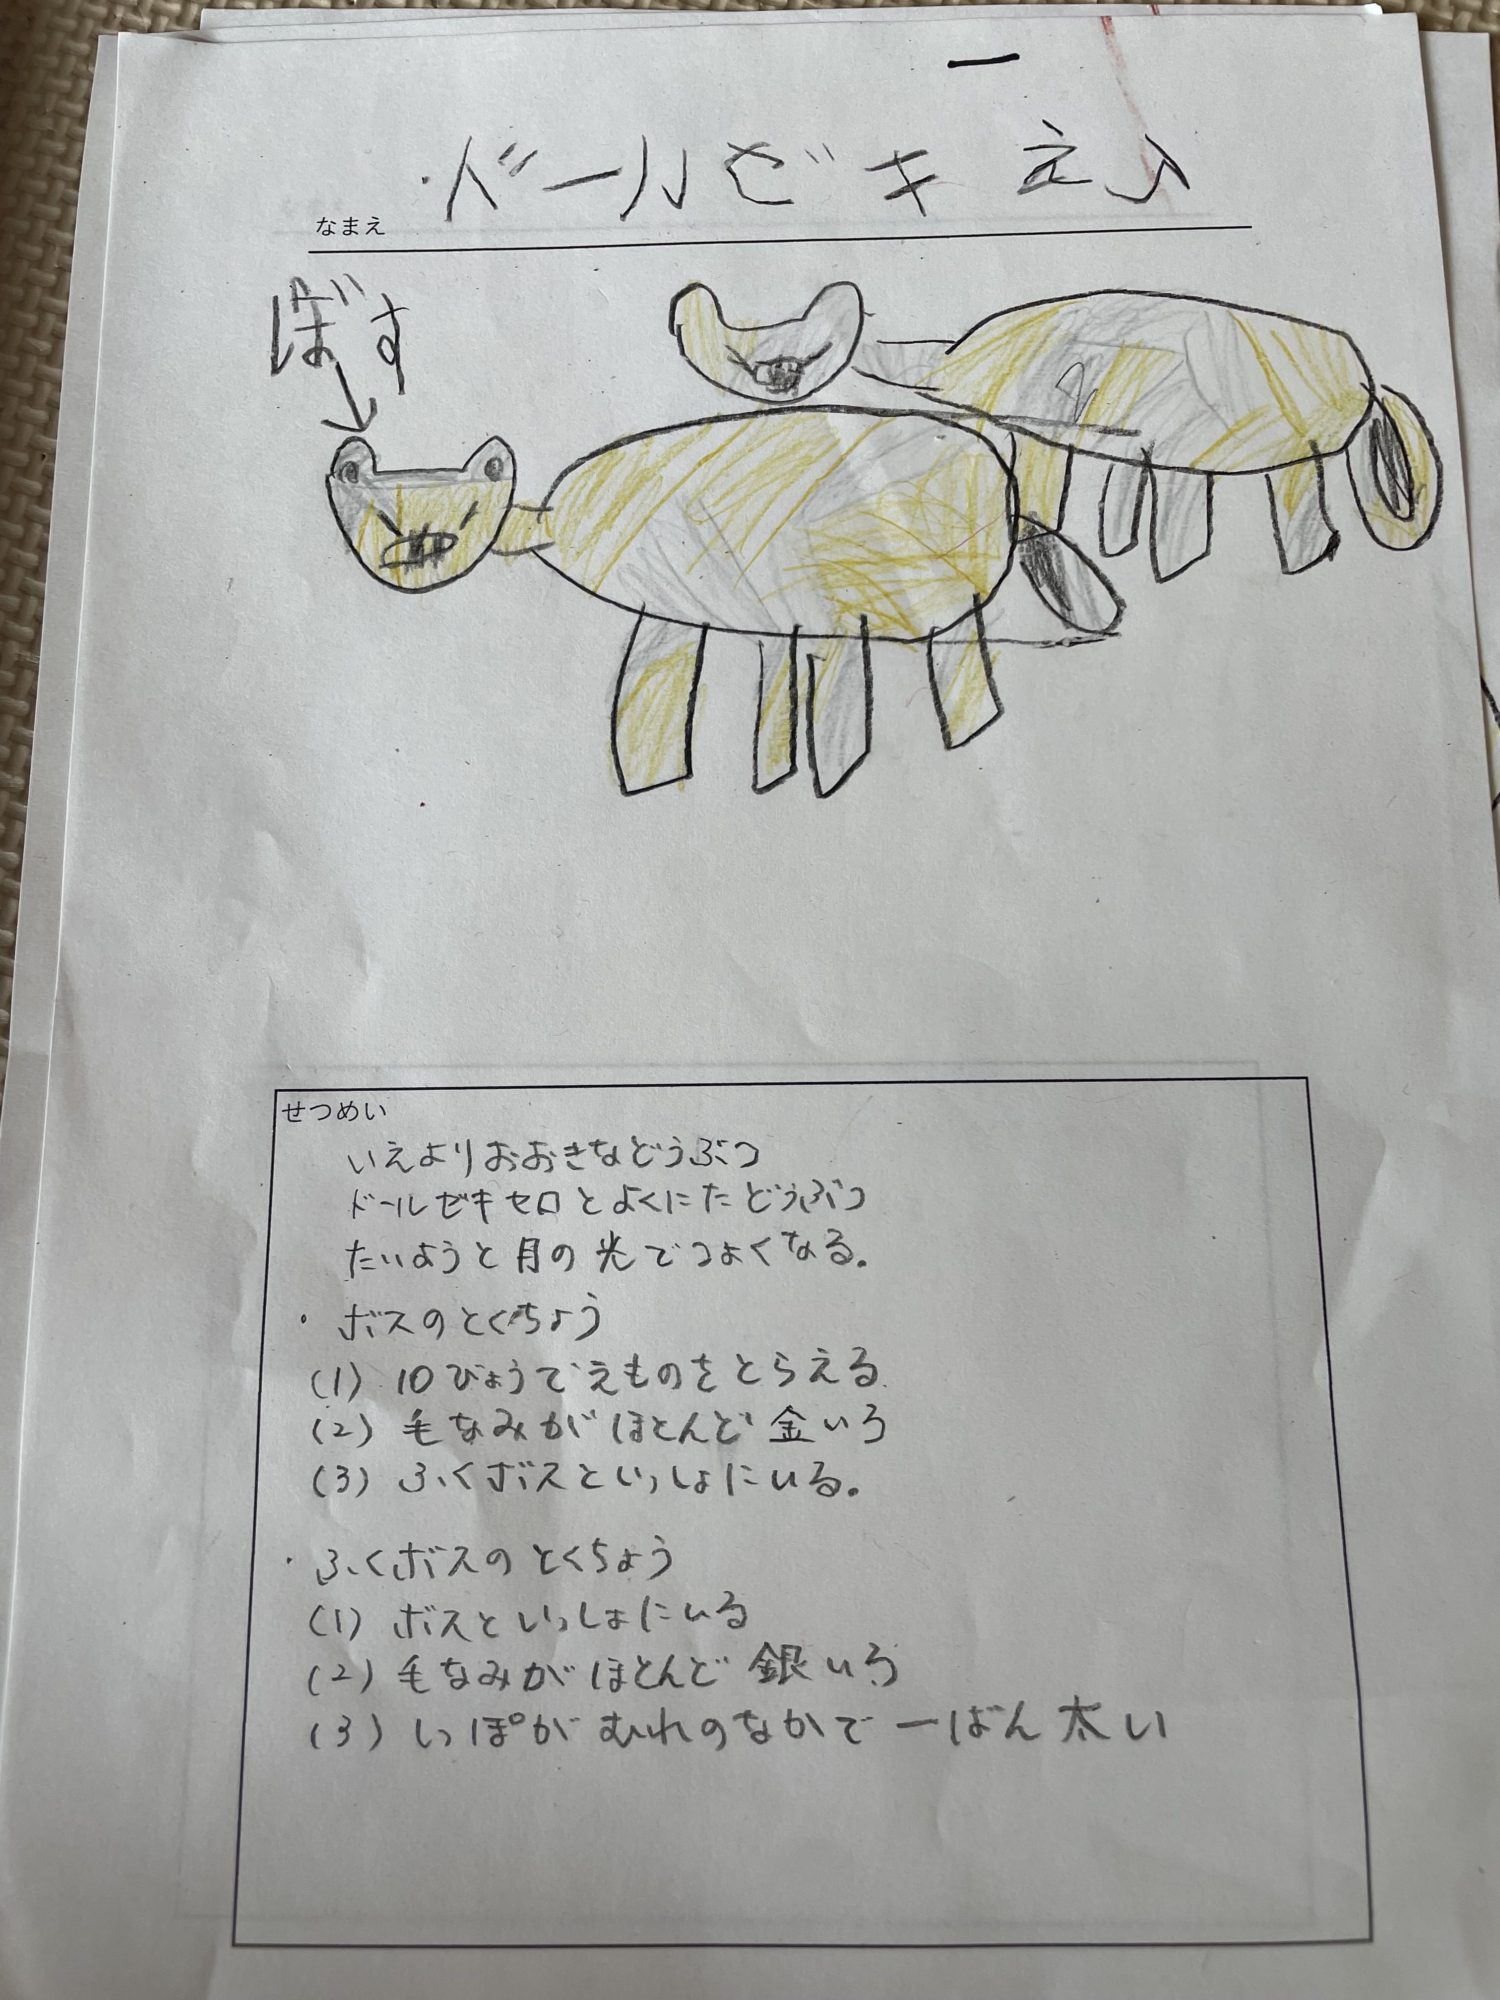 ドールゼキ
なまえ
ぼす
せつめい
いえよりおおきなどうぶつ
ドールゼキセロとよくにたどうぶつ
たいようと月の光でつよくなる。
・ボスのとくちょう
(1) 10びょうでえものをとらえる
(2) 毛なみがほとんど金いろ
(3) ふくボスといっしょにいる。
・ふくボスのとくちょう
(1) ボスといっしょにいる
(2) 毛なみがほとんど銀いろ
(3) しっぽがむれのなかで一ばん太い